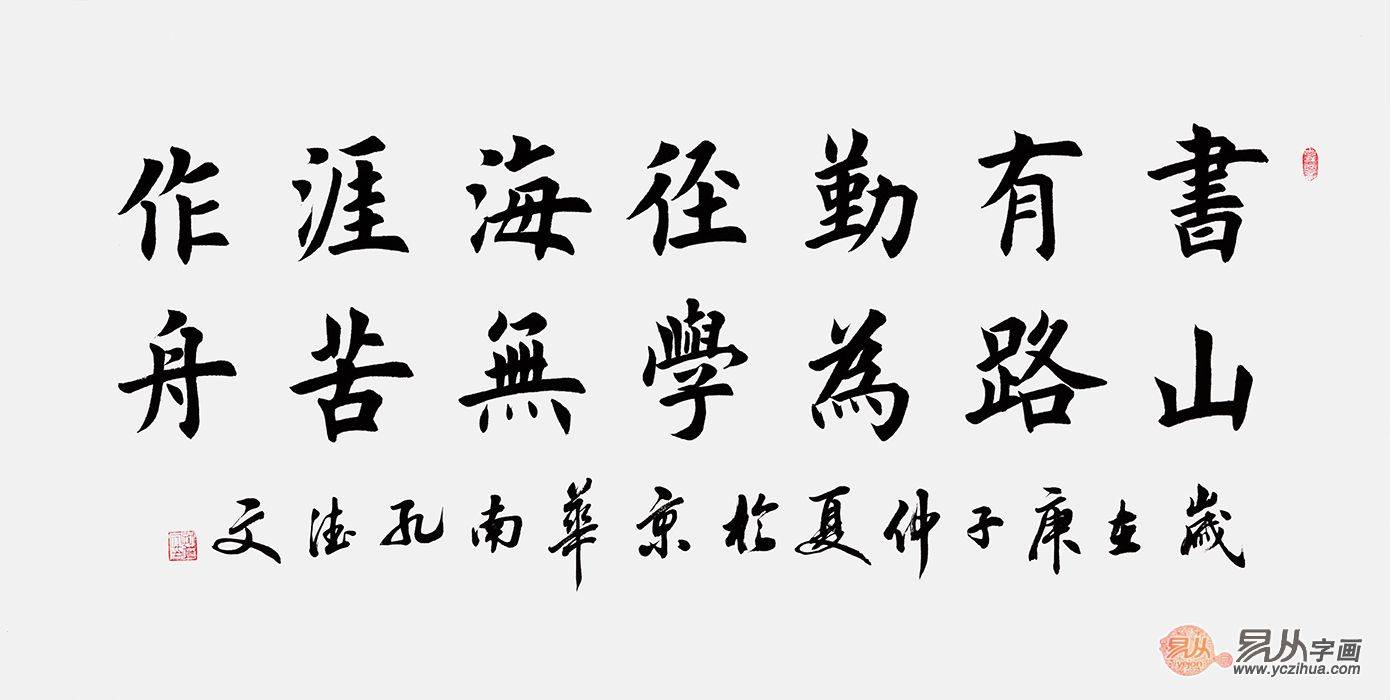 書山
有路
勤為
径學
海無
涯苦
作舟
歲在庚子仲夏於京華南孔德文
易从字画
www.yczihua.com